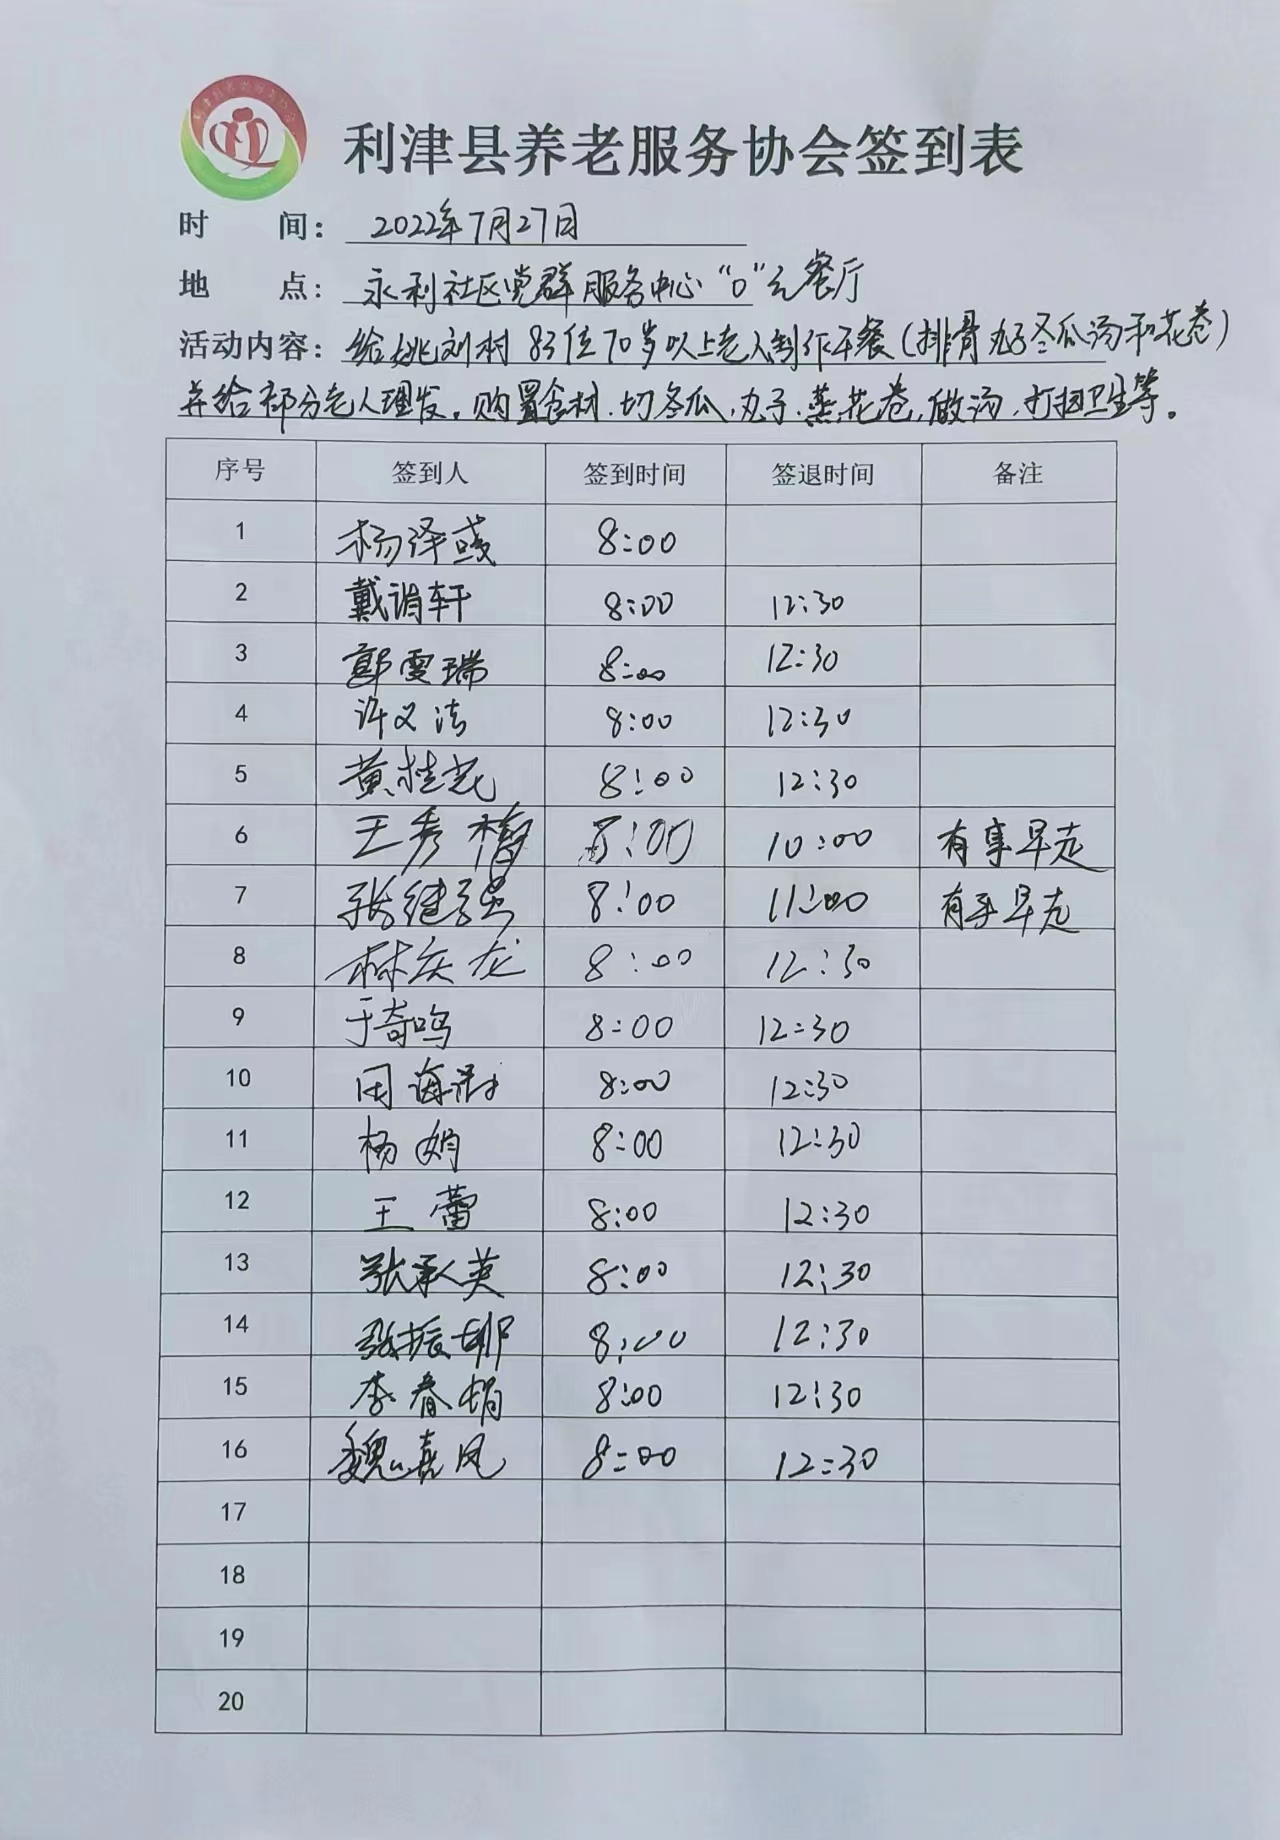 利津县养老服务协会签到表
时 间： 2022年7月27日
地 点： 永利社区党群服务中心“0”元餐厅
活动内容： 给姚刘村83位70岁以上老人制作午餐（排骨丸子冬瓜汤和花卷）
并给部分老人理发。购置食材、切冬瓜、丸子、蒸花卷，做汤，打扫卫生等。
序号 签到人 签到时间 签退时间 备注
1 杨泽彧 8:00
2 戴谓轩 8:00 12:30
3 郭雯瑞 8:00 12:30
4 许义洁 8:00 12:30
5 黄桂花 8:00 12:30
6 王秀梅 8:00 10:00 有事早走
7 张继强 8:00 11:00 有事早走
8 林庆龙 8:00 12:30
9 于奇鸣 8:00 12:30
10 田海 8:00 12:30
11 杨娟 8:00 12:30
12 王蕾 8:00 12:30
13 张承英 8:00 12:30
14 张振 8:00 12:30
15 李春娟 8:00 12:30
16 魏嘉凤 8:00 12:30
17
18
19
20